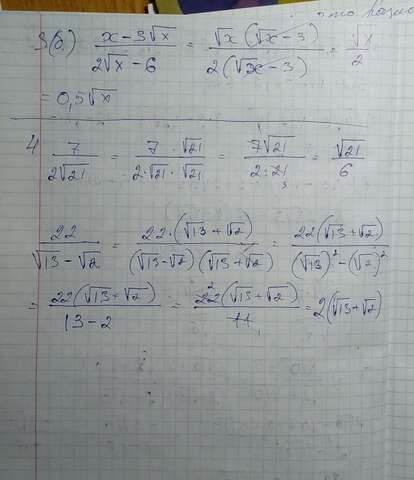 это
3(б) (x - 3√x)/(2√x - 6) = (√x (√x - 3))/(2(√x - 3)) = √x/2
= 0,5√x
4 7/(2√21) = (7 · √21)/(2·√21·√21) = 7√21/(2·21) = √21/6
22/(√13 - √2) = (22·(√13 + √2))/((√13 - √2)(√13 + √2)) = (22(√13 + √2))/((√13)² - (√2)²)
= (22(√13 + √2))/(13 - 2) = (22(√13 + √2))/11 = 2(√13 + √2)